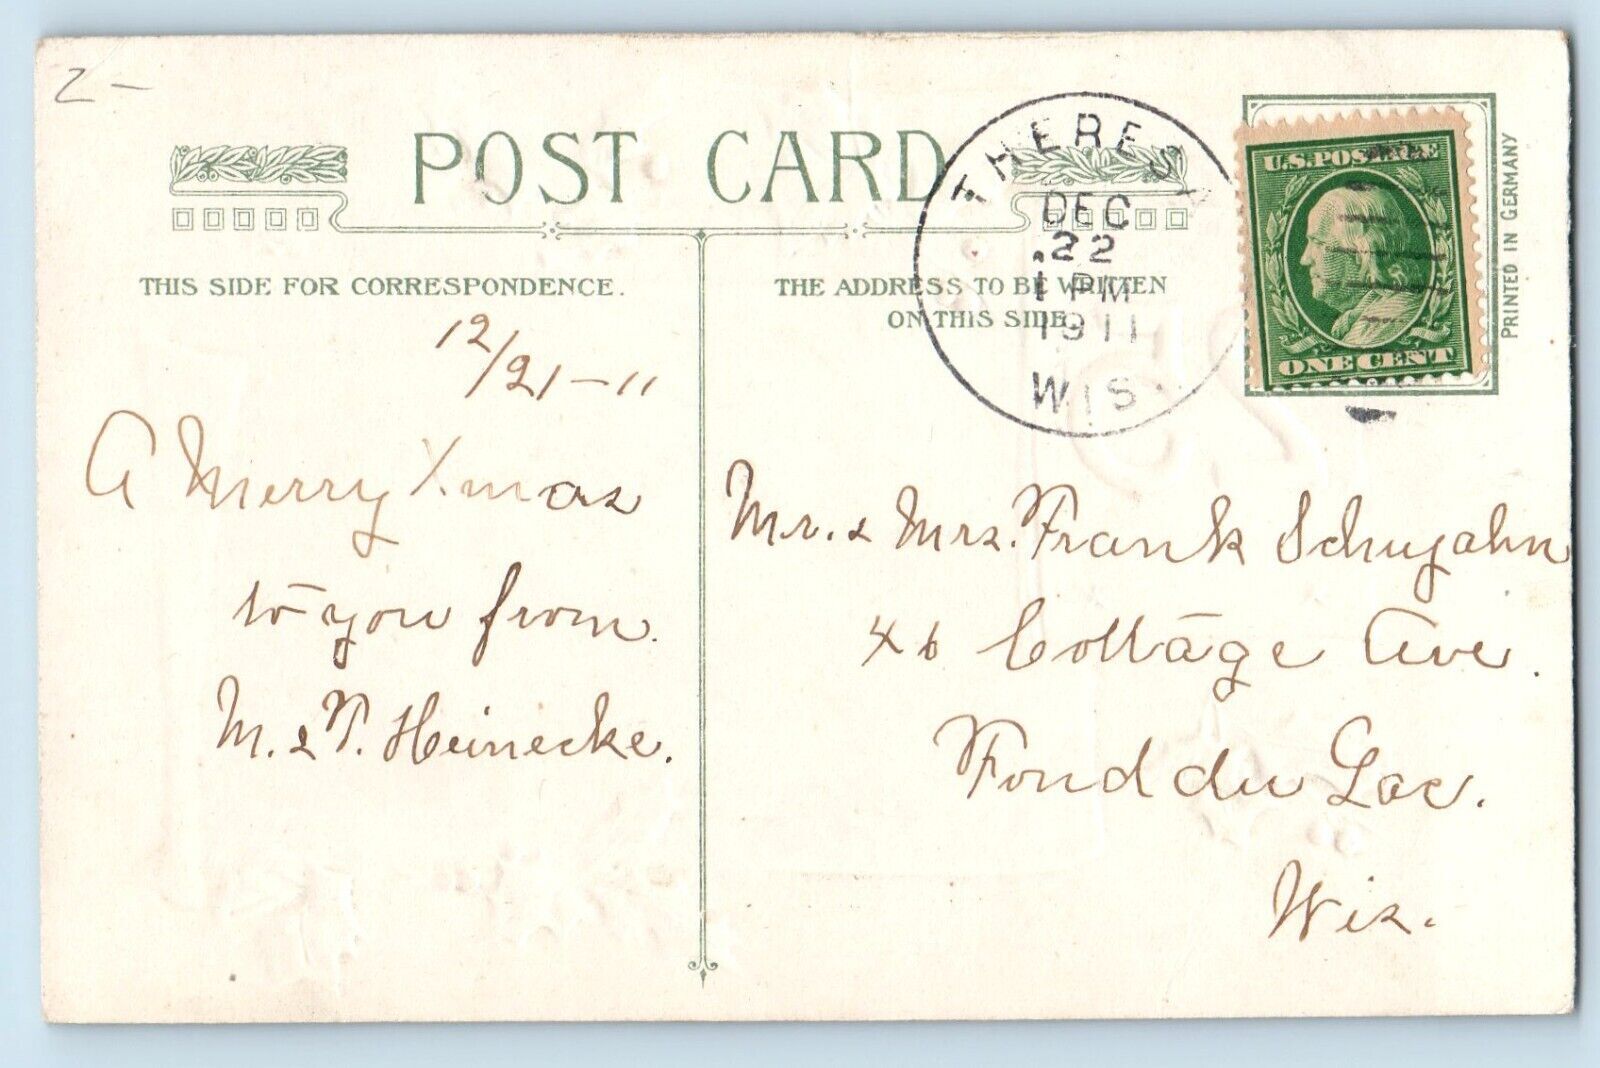 2-
POST CARD
THIS SIDE FOR CORRESPONDENCE.
12/21-11
A Merry Xmas
to you from
M. & T. Heinecke.
THE ADDRESS TO BE WRITTEN
ON THIS SIDE
THERES
DEC
22
1 PM
1911
WIS.
U.S. POSTAGE
ONE CENT
PRINTED IN GERMANY
Mr. & Mrs. Frank Schujahn
46 Cottage Ave.
Fond du Lac.
Wis.